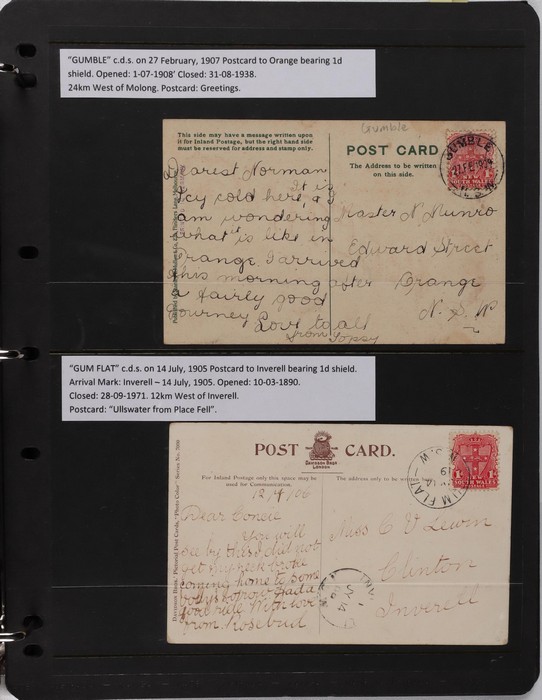 "GUMBLE" c.d.s. on 27 February, 1907 Postcard to Orange bearing 1d
shield. Opened: 1-07-1908' Closed: 31-08-1938.
24km West of Molong. Postcard: Greetings.
Gumble
This side may have a message written upon
it for Inland Postage, but the right hand side
must be reserved for address and stamp only.
POST CARD
The Address to be written
on this side.
GUMBLE
SOUTH WALES
Dearest Norman
It is
Icy cold here, & I
am wondering
what it is like in
Orange. I arrived
this morning after
a fairly good
journey Love to all
from Topsy
Master N. Munro
Edward Street
Orange
N. S. W
"GUM FLAT" c.d.s. on 14 July, 1905 Postcard to Inverell bearing 1d shield.
Arrival Mark: Inverell – 14 July, 1905. Opened: 10-03-1890.
Closed: 28-09-1971. 12km West of Inverell.
Postcard: "Ullswater from Place Fell".
POST CARD.
DAVIDSON BROS.
LONDON
For Inland Postage only this space may be
used for Communication.
The address only to be written
GUM FLAT
N.S.W
SOUTH WALES
Davidson Bros.' Pictorial Post Cards, "Photo Color" Series No. 7000
Dear
You will
see by this I did not
get
coming home to some
good ride With love
from Rosebud
Miss C V Lewin
Clinton
Inverell